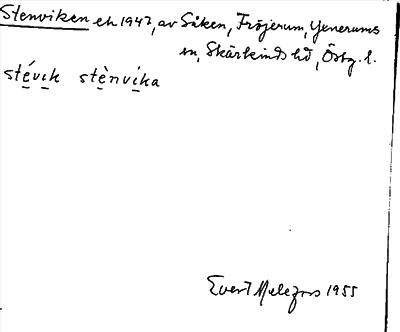 Stenviken ek 1947, av Säken, Fröjerum, Yxnerums
sn, Skärkinds hd, Östg. l.
stévik stènvika
Evert Melefors 1955